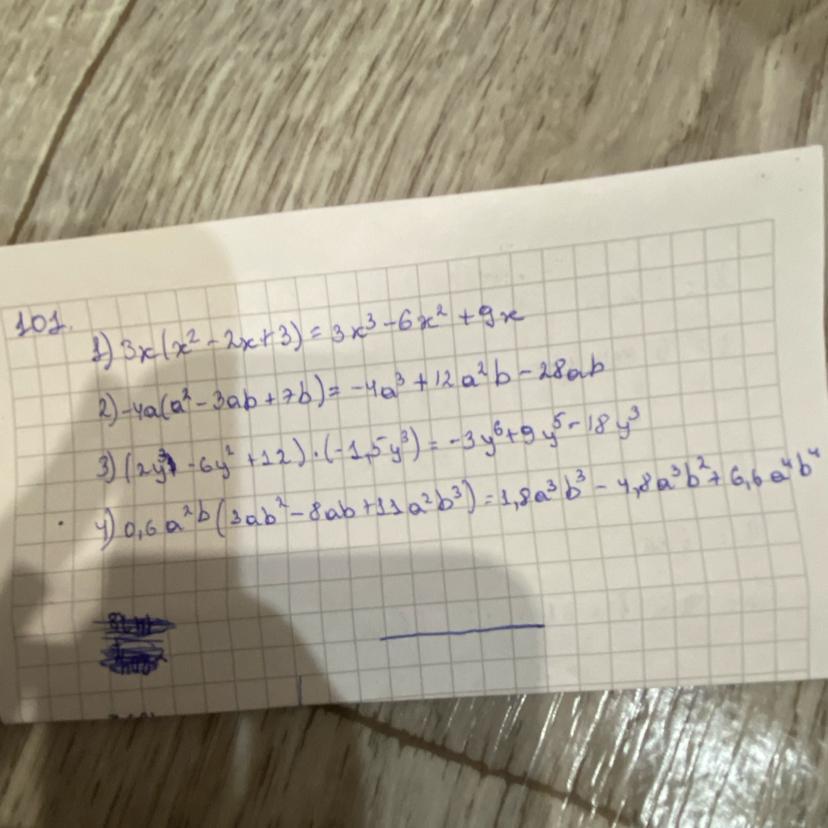 101.
1) 3x(x² - 2x + 3) = 3x³ - 6x² + 9x
2) -4a(a² - 3ab + 7b) = -4a³ + 12a²b - 28ab
3) (2y³ - 6y² + 12) · (-1,5y³) = -3y⁶ + 9y⁵ - 18y³
4) 0,6a²b(3ab² - 8ab + 11a²b³) = 1,8a³b³ - 4,8a³b² + 6,6a⁴b⁴